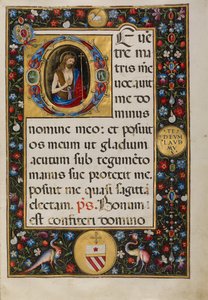 DE vē
tre
matris me
e vocavit
me do
minus
nomine meo: et posuit
os meum ut gladium
acutum sub tegumēto
manus sue protexit me.
posuit me quasi sagittā
electam. ps. Bonum
est confiteri domino
TE
DEVM
LAVDA
MV